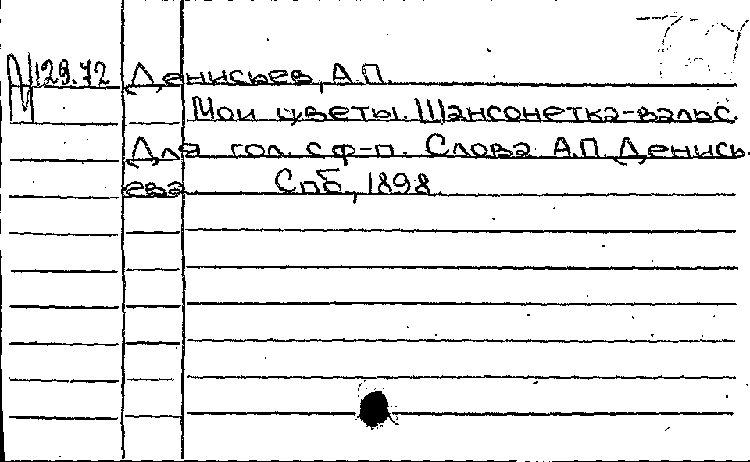 129.72 Денисьев, А.П.
Мои цветы. Шансонетка-вальс.
Для гол. с ф-п. Слова А.П. Денись
ева Спб., 1898.